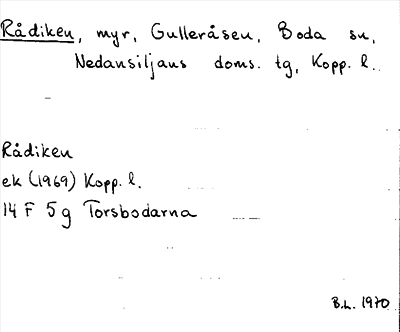 Rådiken, myr, Gulleråsen, Boda sn,
Nedansiljans doms. tg, Kopp. l.
Rådiken
ek (1969) Kopp. l.
14 F 5 g Torsbodarna
B.L. 1970